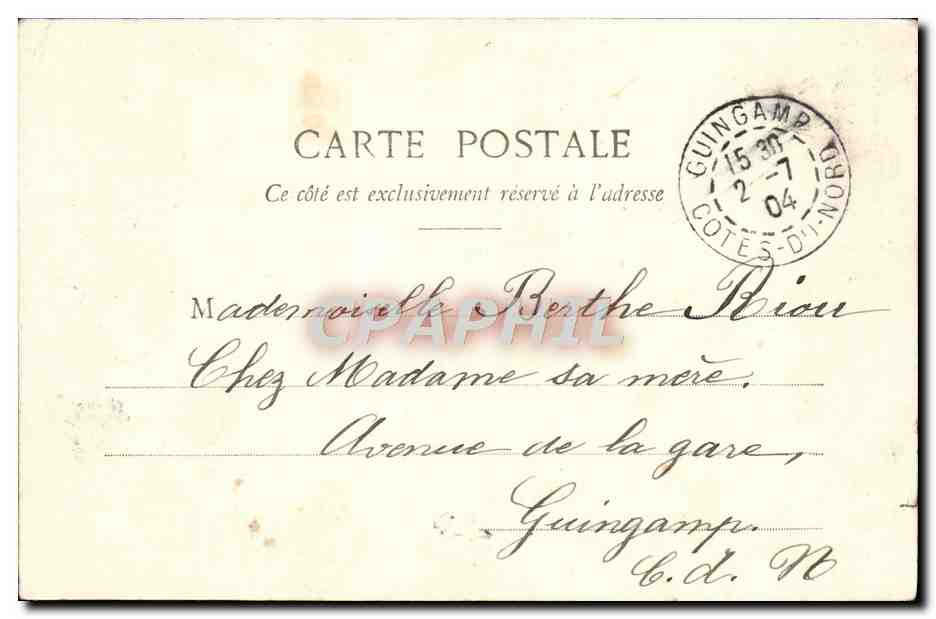 CARTE POSTALE
Ce côté est exclusivement réservé à l'adresse
GUINGAMP
15 30
2 -7
04
COTES-DU-NORD
Mademoiselle Berthe Riou
CPAPHIL
Chez Madame sa mère.
Avenue de la gare,
Guingamp.
C. d. N